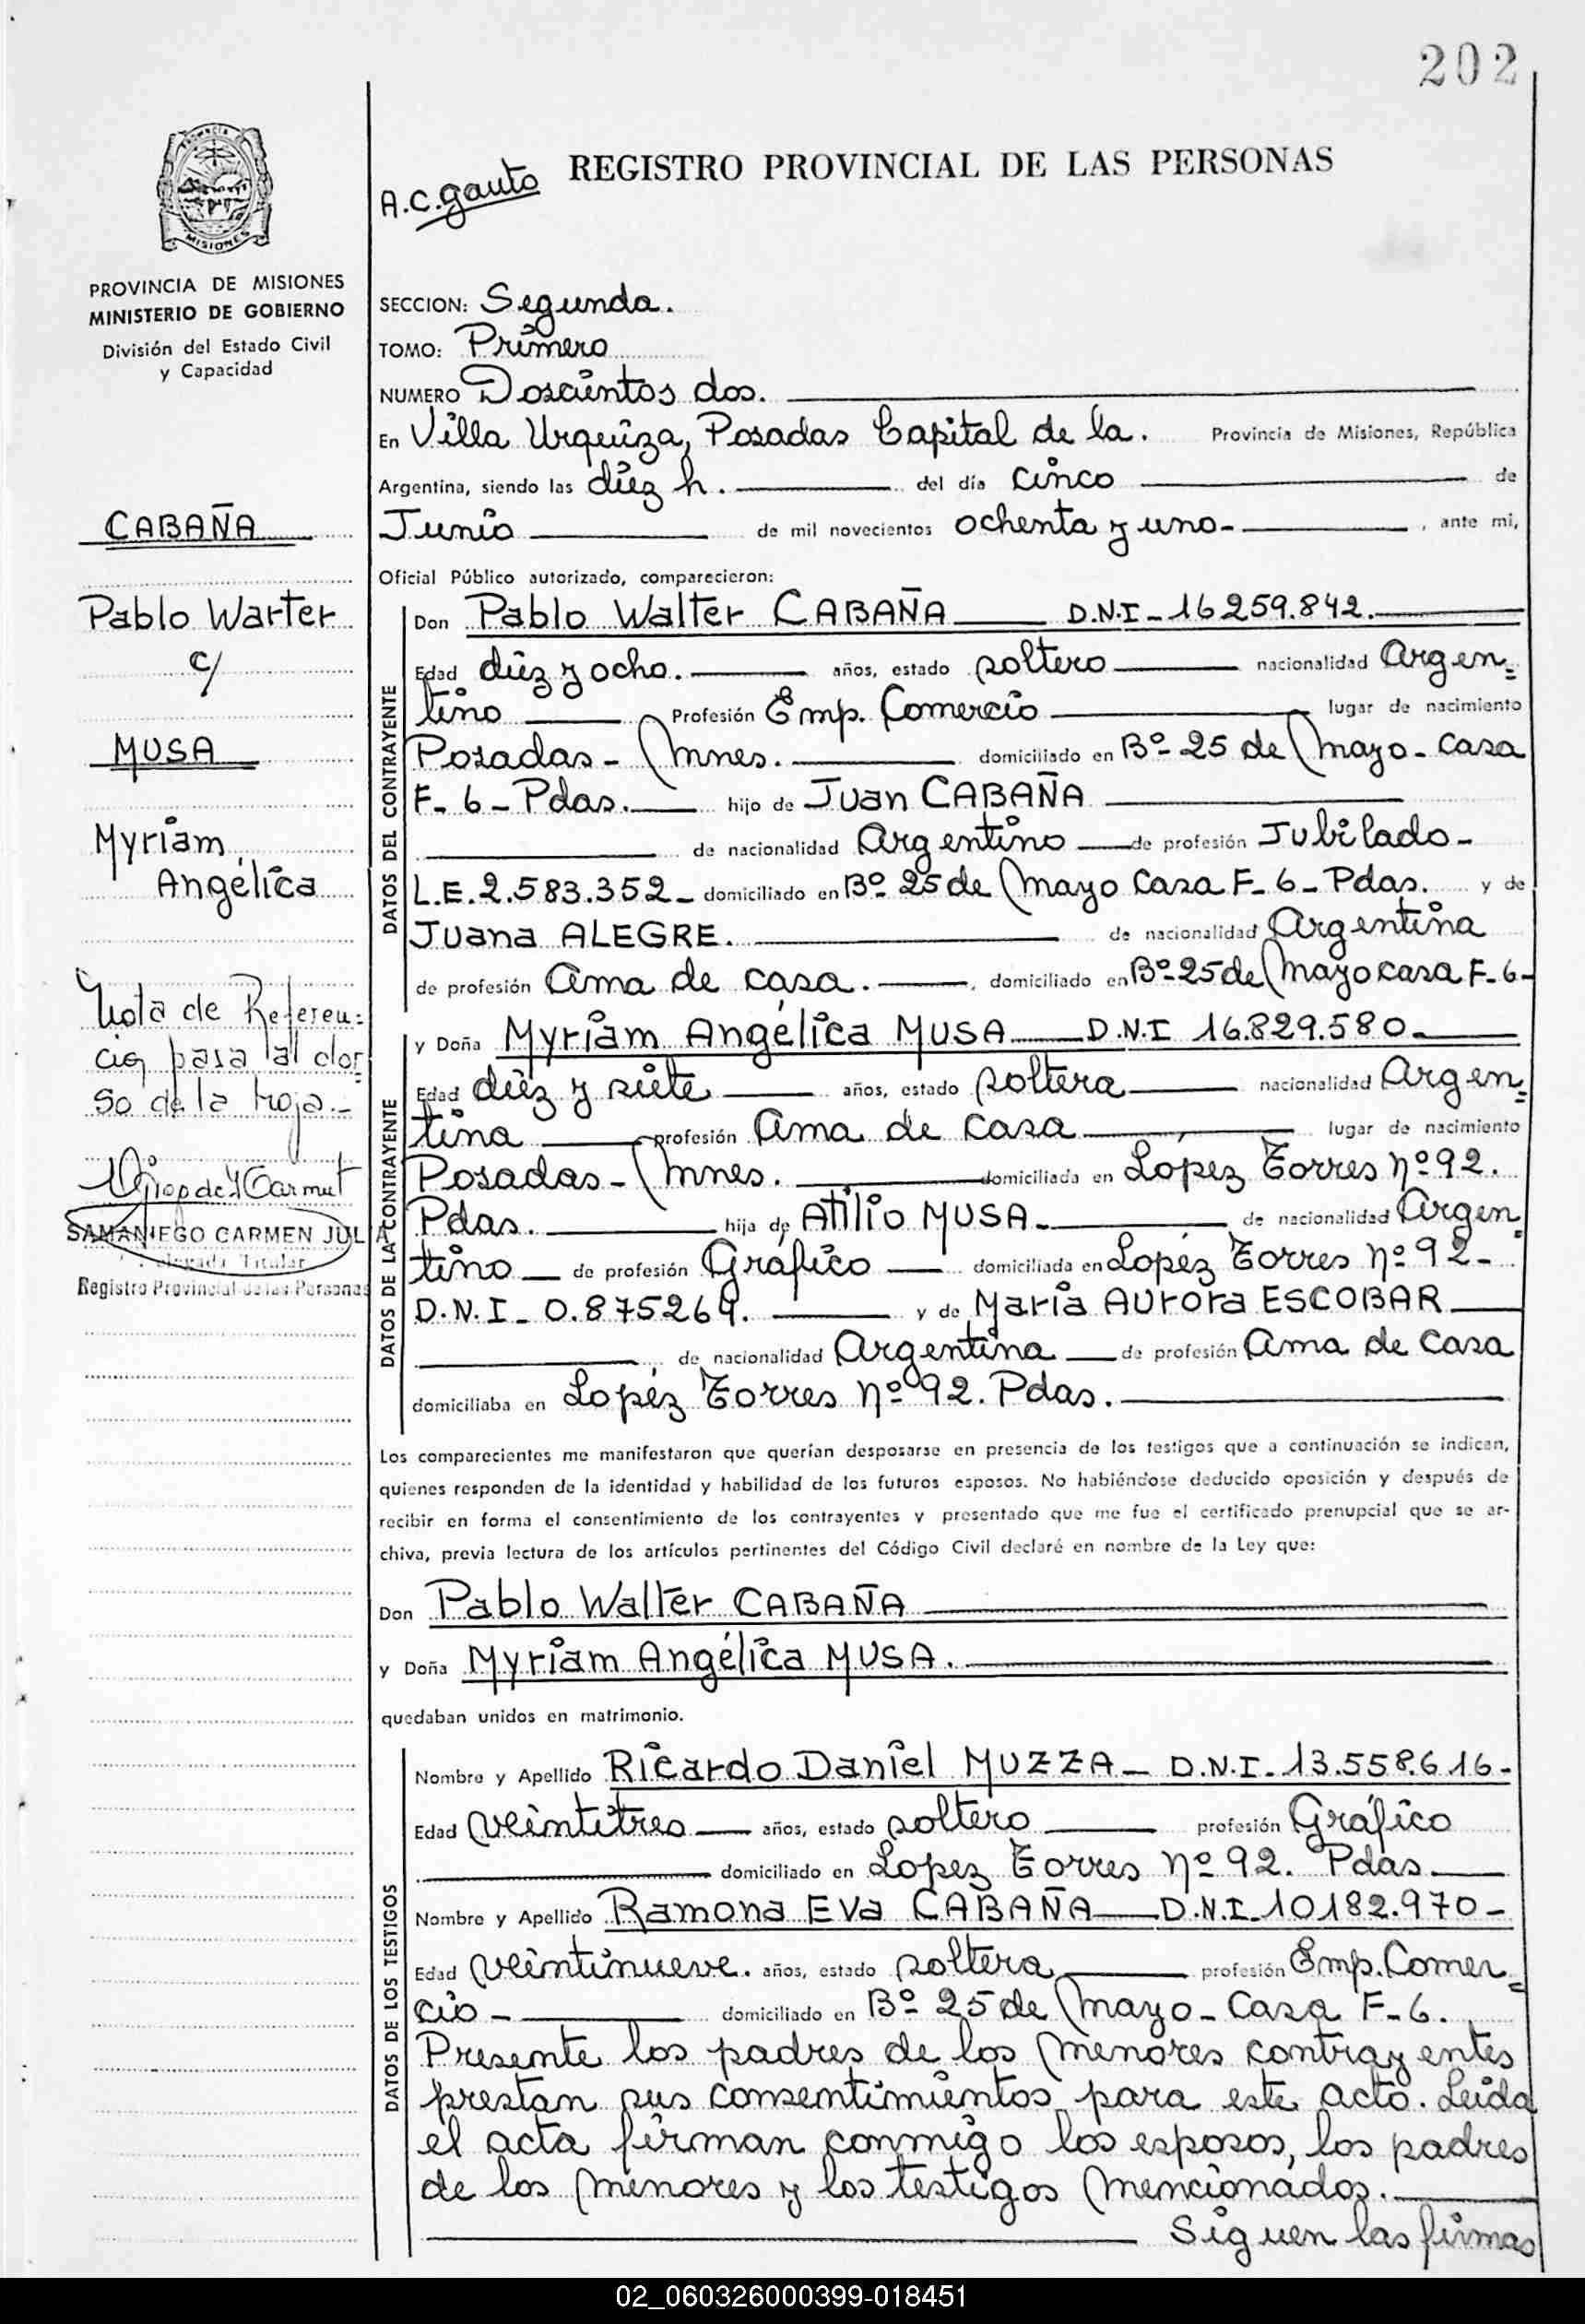 202
REGISTRO PROVINCIAL DE LAS PERSONAS
A.C. Gauto
PROVINCIA
MISIONES
PROVINCIA DE MISIONES
MINISTERIO DE GOBIERNO
División del Estado Civil
y Capacidad
CABAÑA
Pablo Warter
c/
MUSA
Myriam
Angélica
Nota de Referen=
cia pasa al dor
so de la hoja.-
SAMANIEGO CARMEN JULIA
Delegada Titular
Registro Provincial de las Personas
SECCION: Segunda.
TOMO: Primero
NUMERO Doscientos dos.
En Villa Urquiza, Posadas Capital de la. Provincia de Misiones, República
Argentina, siendo las diez h. del día cinco de
Junio de mil novecientos ochenta y uno- , ante mi,
Oficial Público autorizado, comparecieron:
DATOS DEL CONTRAYENTE
Don Pablo Walter CABAÑA D.N.I-16259.842.
Edad diez y ocho. años, estado soltero nacionalidad Argen=
tino Profesión Emp. Comercio lugar de nacimiento
Posadas- Mnes. domiciliado en Bº-25 de Mayo-Casa
F-6-Pdas. hijo de Juan CABAÑA
de nacionalidad Argentino de profesión Jubilado-
L.E.2.583.352- domiciliado en Bº 25 de Mayo Casa F-6-Pdas. y de
Juana ALEGRE. de nacionalidad Argentina
de profesión Ama de casa. , domiciliado en Bº-25 de Mayo casa F-6-
DATOS DE LA CONTRAYENTE
y Doña Myriam Angélica MUSA D.N.I 16.829.580-
Edad diez y siete años, estado soltera nacionalidad Argen=
tina profesión Ama de casa lugar de nacimiento
Posadas- Mnes. domiciliada en Lopez Torres nº92.
Pdas. hija de Atilio MUSA- de nacionalidad Argen=
tino de profesión Gráfico domiciliada en Lopéz Torres nº 92-
D.N.I- 0.875269. y de María Aurora ESCOBAR
de nacionalidad Argentina de profesión Ama de casa
domiciliaba en Lopéz Torres nº 92. Pdas.
Los comparecientes me manifestaron que querían desposarse en presencia de los testigos que a continuación se indican,
quienes responden de la identidad y habilidad de los futuros esposos. No habiéndose deducido oposición y después de
recibir en forma el consentimiento de los contrayentes y presentado que me fue el certificado prenupcial que se ar-
chiva, previa lectura de los artículos pertinentes del Código Civil declaré en nombre de la Ley que:
Don Pablo Walter CABAÑA
y Doña Myriam Angélica MUSA.
quedaban unidos en matrimonio.
DATOS DE LOS TESTIGOS
Nombre y Apellido Ricardo Daniel MUZZA- D.N.I-13.558.616-
Edad veintitres años, estado soltero profesión Gráfico
domiciliado en Lopez Torres nº 92. Pdas.
Nombre y Apellido Ramona Eva CABAÑA D.N.I-10182.970-
Edad veintinueve. años, estado soltera profesión Emp. Comer=
cio- domiciliado en Bº-25 de Mayo-Casa F-6.
Presente los padres de los menores contrayentes
prestan sus consentimientos para este acto. Leida
el acta firman conmigo los esposos, los padres
de los menores y los testigos mencionados.
Siguen las firmas
02_060326000399-018451